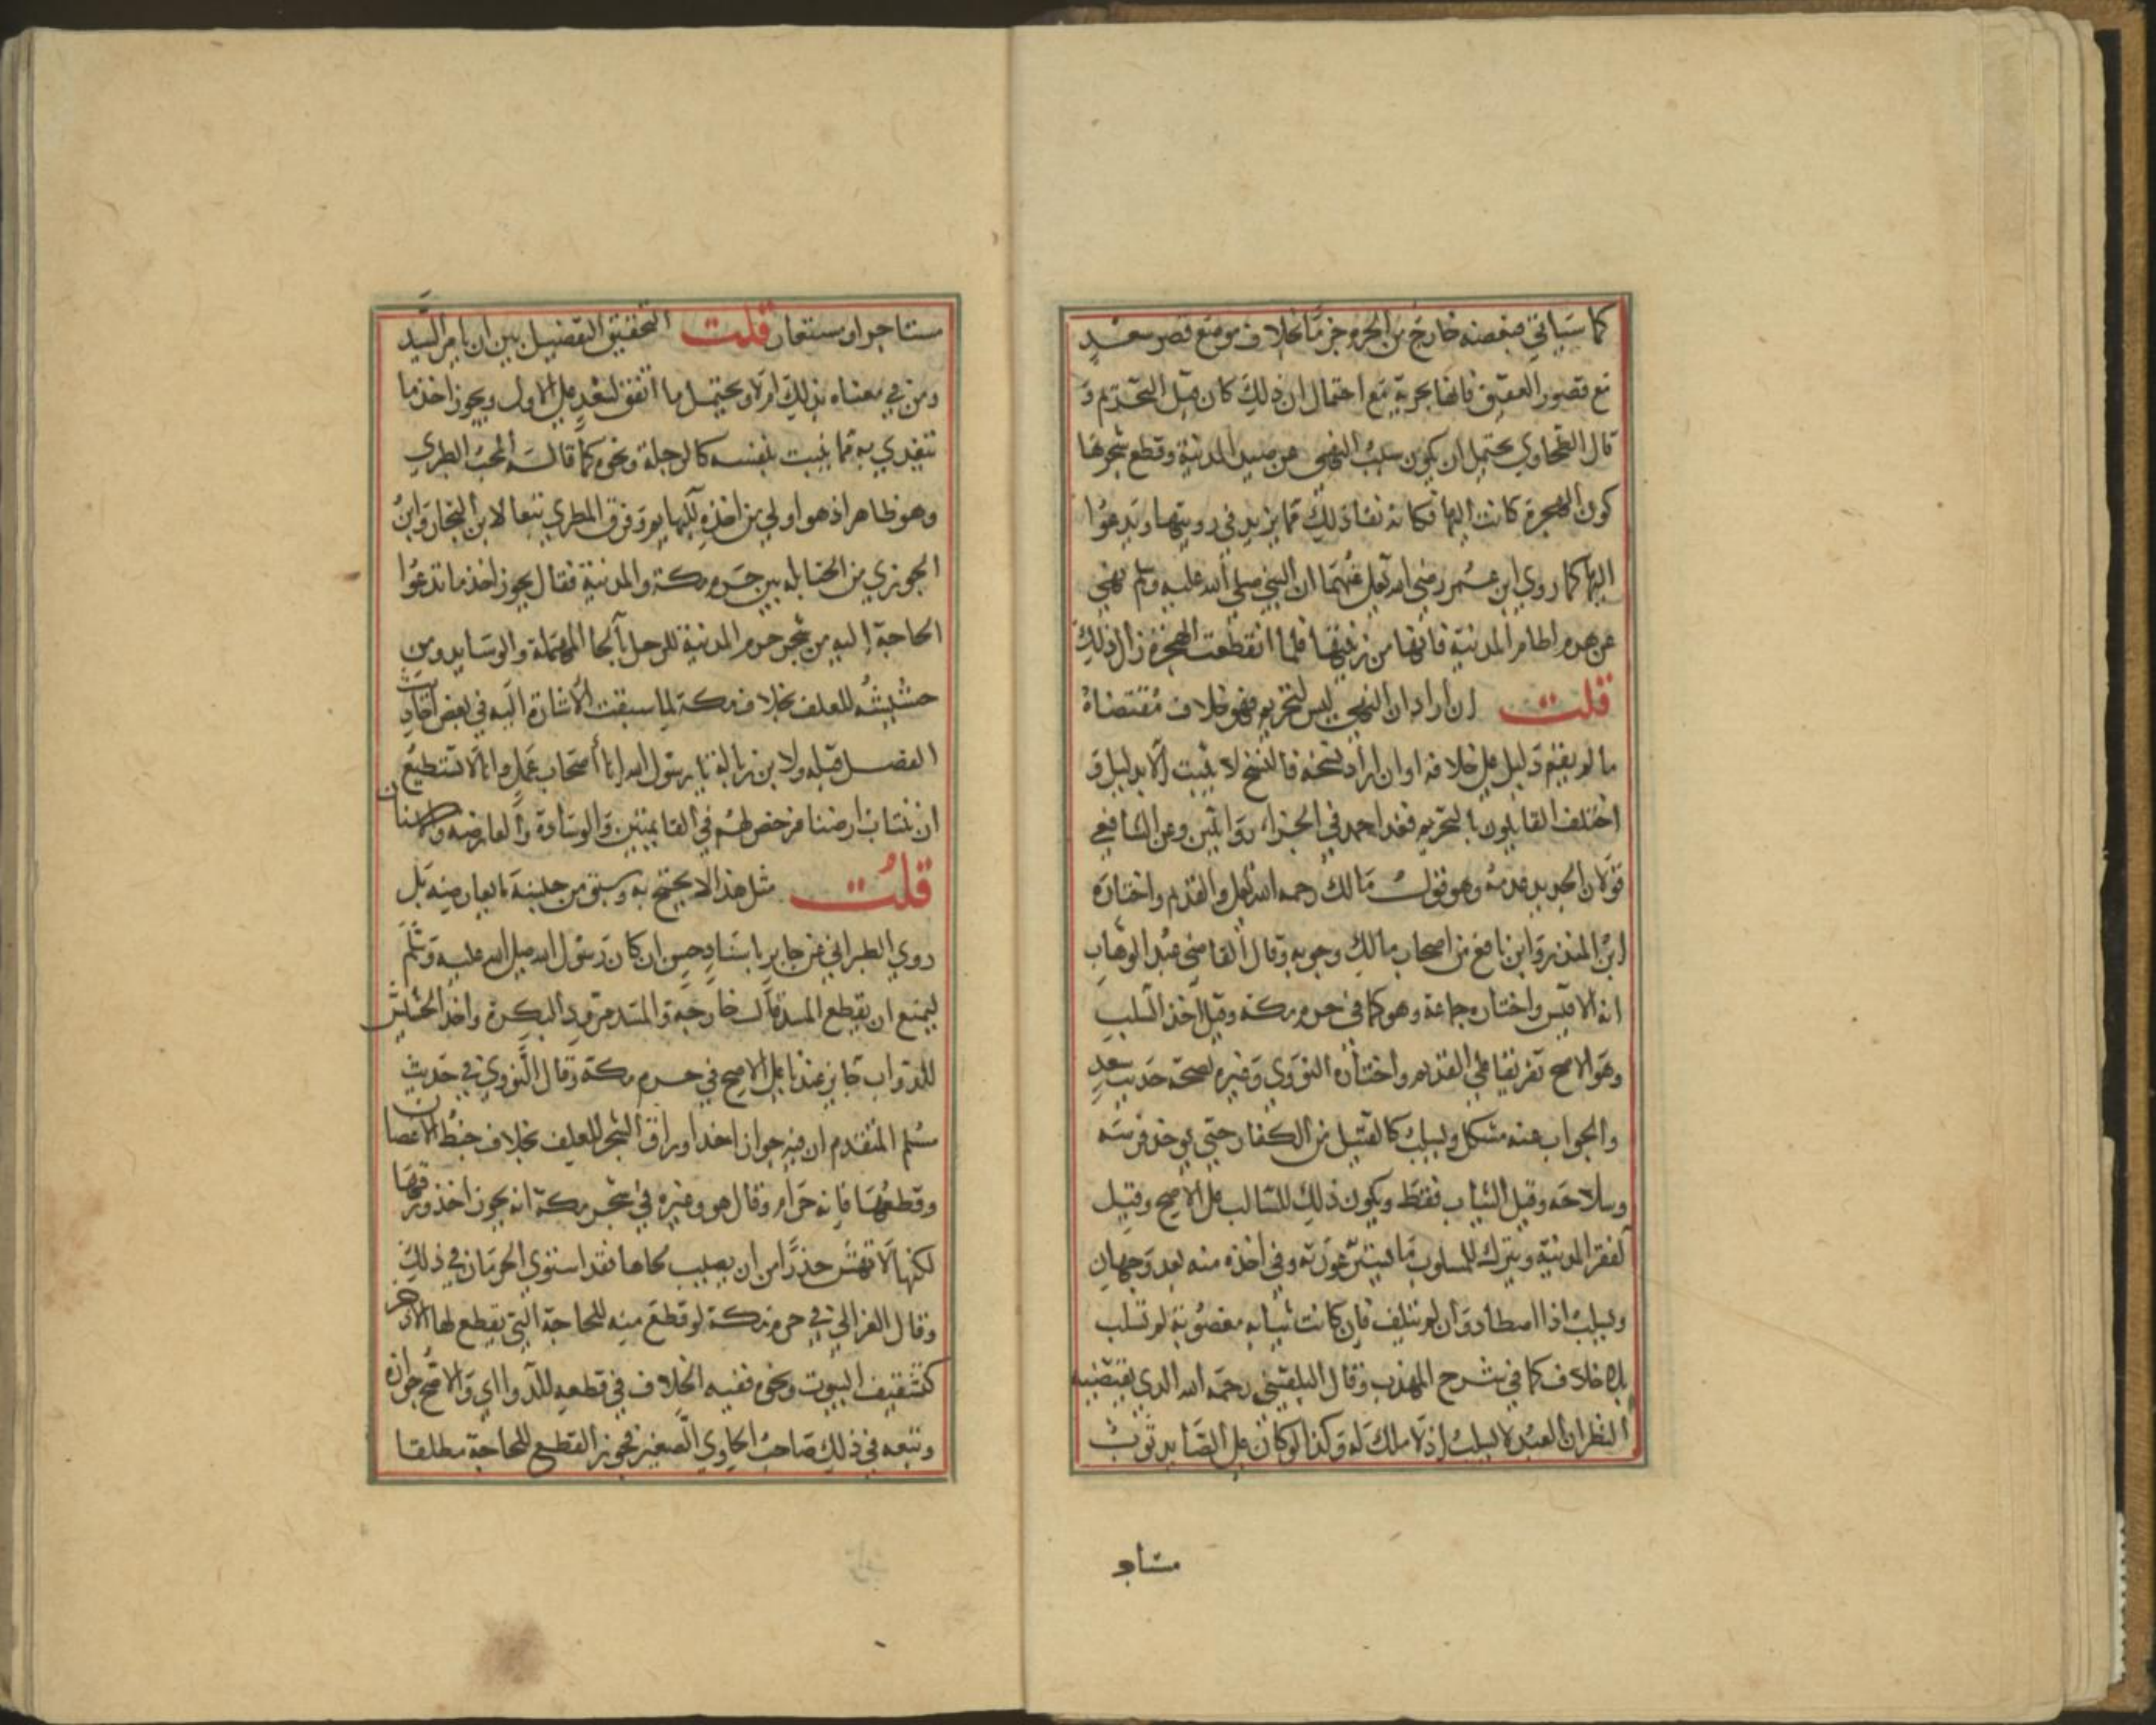 كما سياتي فبعضه خارج من الحرم جزما بخلاف موضع قصر سعد
مع قصور العقيق فانها بحرية مع احتمال ان ذلك كان قبل التحريم و
قال الطحاوي يحتمل ان يكون سبب النهي عن صيد المدنية وقطع شجرها
كون الهجرة كانت اليها فكانه بقاذلك مما يزيد في رويتها ويدعوا
اليها كما روي ابن عمر رضي الله تعالى عنهما ان النبي صلى الله عليه وسلم نهي
عن هدم اطام المدنية فانها من زينتها فلما انقطعت الهجرة زال ذلك
قلت ان اراد ان النهي ليس لتحريم فهو خلاف مقتضاه
ما لم يقم دليل على خلافه او ان اراد نسخه فالنسخ لا يثبت الا بدليل و
اختلف القايلون بالتحريم فعند احمد في الجزاء روايتين وعن الشافعي
قولان الجديد عدمه وهو قول مالك رحمه الله تعالى والقديم واختاره
ابن المنذر وابن نافع من اصحاب مالك وجوبه وقال القاضي عبد الوهاب
انه الاقيس واختاره جماعة وهو كما في حرم مكة وقيل اخذ السلب
وهو الاصح تفريقا على القديم واختاره النووي وغيره لصحة حديث سعد
والجواب عنه مشكل ويسلب كالقتيل من الكفار حتي يوخذ فرسه
وسلاحه وقيل الثياب فقط ويكون ذلك للسالب على الاصح وقيل
لفقرا المدنية ويترك للمسلوب ما يستر عورته وفي اخذه منه بعد وجهان
ويسلب اذا اصطاد وان لم يتلف فان كانت ثيابه مغصوبة لم تسلب
بلا خلاف كما في شرح المهذب وقال البلقيني رحمه الله الذي يقتضيه
النظر ان العبد لا يسلب اذ لا ملك له وكذا لو كان على الصايد ثوب
مستاجر
مستاجر او مستعار قلت التحقيق التفضيل بين ان يامر السيد
ومن في معناه بذلك ام لا ويحتمل ما اتفق لسعد على الاول ويجوز اخذ ما
تتغدي به مما ينبت بنفسه كالرجلة ونحوه كما قاله المحب الطبري
وهو ظاهر اذ هو اولي من اخذه للبهايم وفرق المطري تبعا لابن النجار وابن
الجوزي من الحنابله بين حرم مكة والمدنية فقال يجوز اخذ ما تدعوا
الحاجة اليه من شجر حرم المدنية للرحل بالحا المهملة والوسايد ومن
حشيشه للعلف بخلاف مكة لما سبقت الاشارة اليه في بعض احاديث
الفصل قبله ولابن زبالة يا رسول الله انا اصحاب عمل وانا لا نستطيع
ان ننتاب ارضنا فرخص لهم في القايمتين والوسادة والعارضه والاسنان
قلت مثل هذا لا يحتج به وسبق من جلبنه ما يعارضه بل
روي الطبراني عن جابر باسناد حسن ان كان رسول الله صلى الله عليه وسلم
ليمنع ان يقطع المسد قال خارجة والمسد مرود البكرة واخذ الحشيش
للدواب جايز عندنا على الاصح في حرم مكة وقال النووي في حديث
مسلم المتقدم ان فيه جواز اخذ اوراق الشجر للعلف بخلاف خبط الاغصان
وقطعها فانه حرام وقال هو وغيره في شجر مكة انه يجوز اخذ ورقها
لكنها لا تهش حذرا من ان يصيب لحاها فقد استوي الحرمان في ذلك
وقال الغزالي في حرم مكة لو قطع منه للحاجة التي يقطع لها الاذخر
كتسقيف البيوت ونحوه ففيه الخلاف في قطعه للدوا اي والاصح جوازه
وتبعه في ذلك صاحب الحاوي الصغير فجوز القطع للحاجة مطلقا